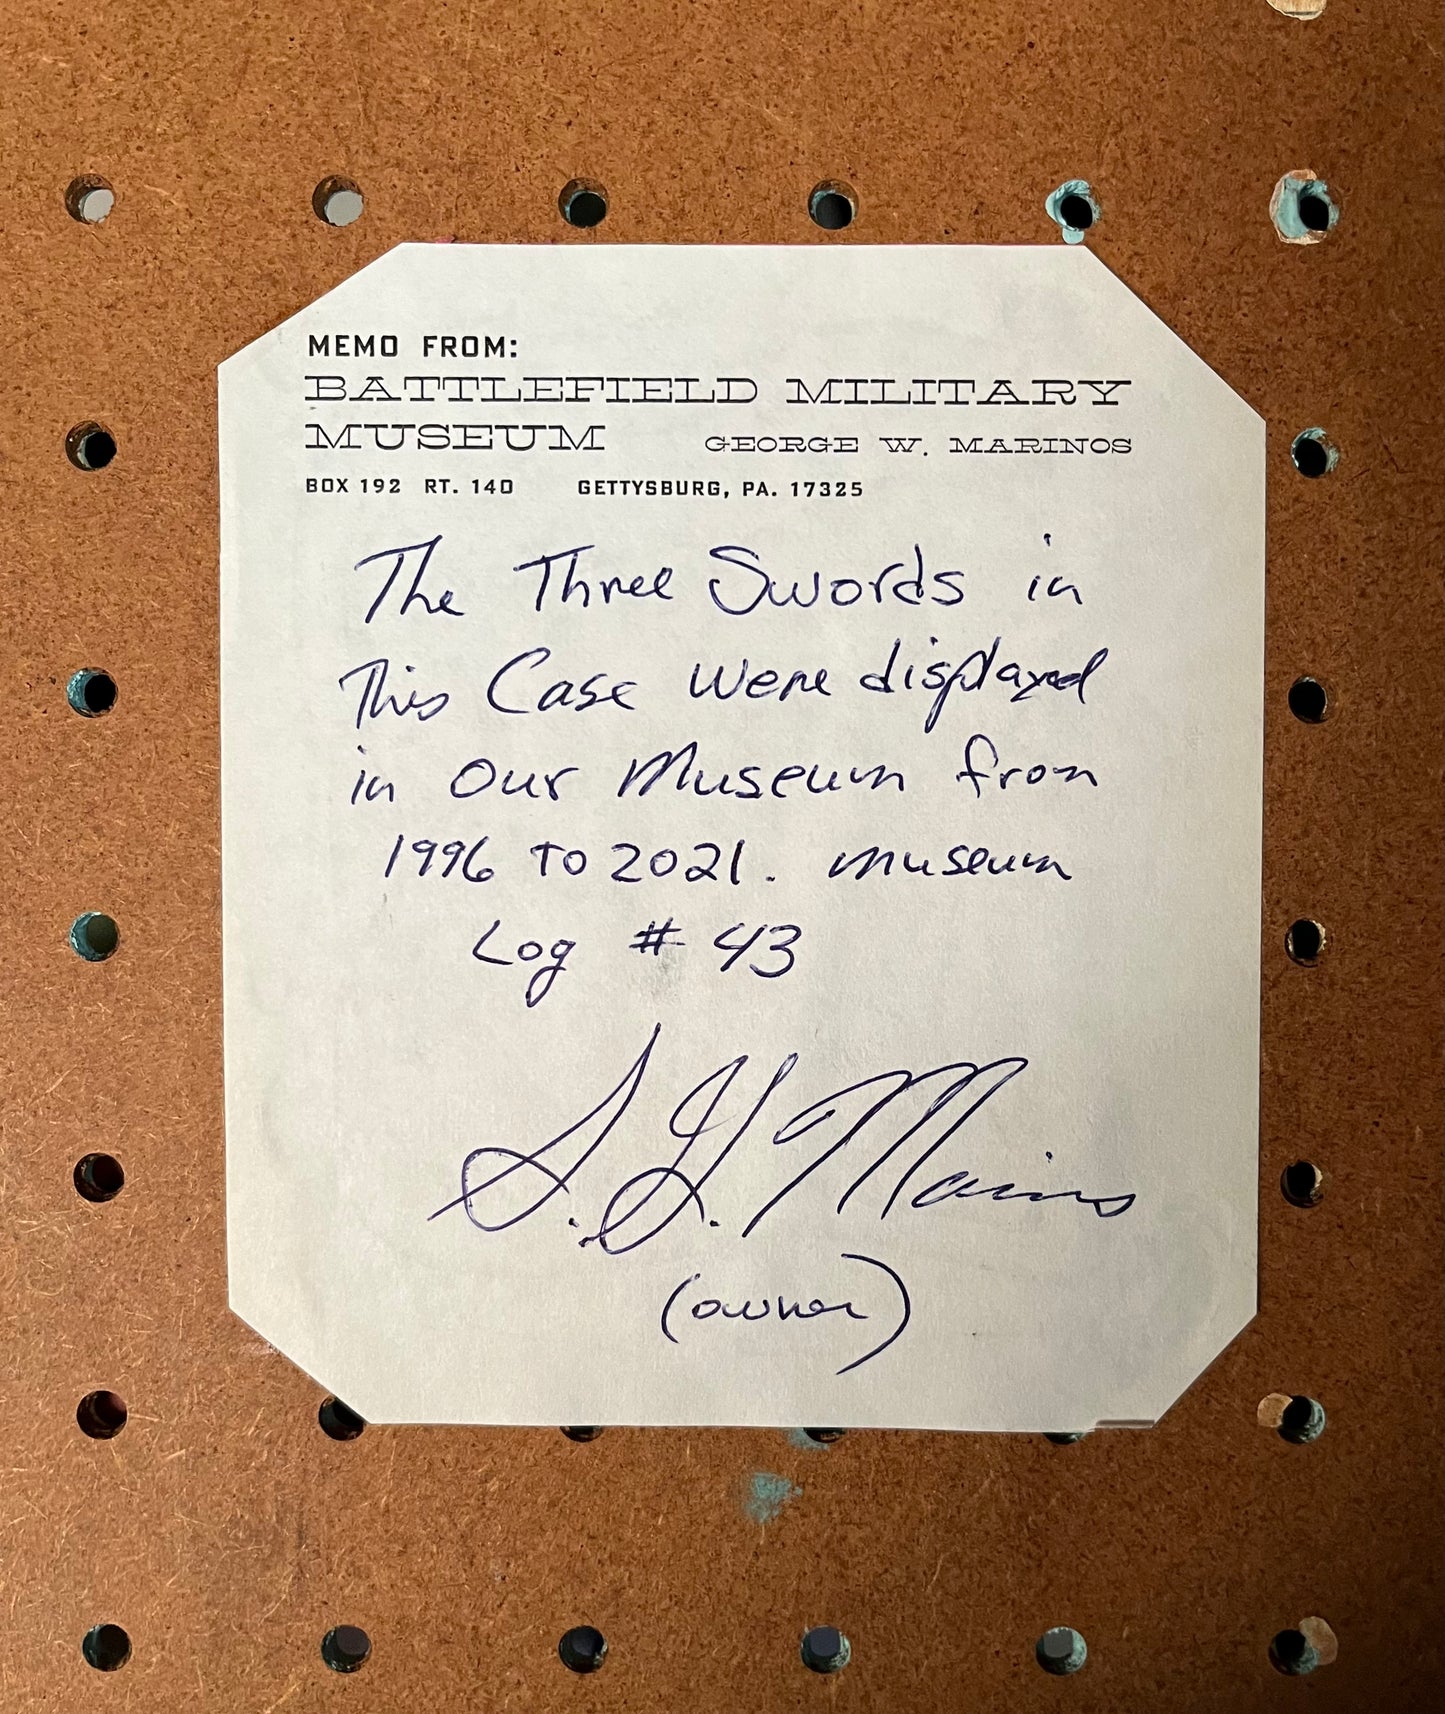 MEMO FROM:
BATTLEFIELD MILITARY
MUSEUM GEORGE W. MARINOS
BOX 192 RT. 140 GETTYSBURG, PA. 17325
The Three Swords in
This Case were displayed
in our Museum from
1996 TO 2021. museum
Log # 43
S. G. Marinos
(owner)